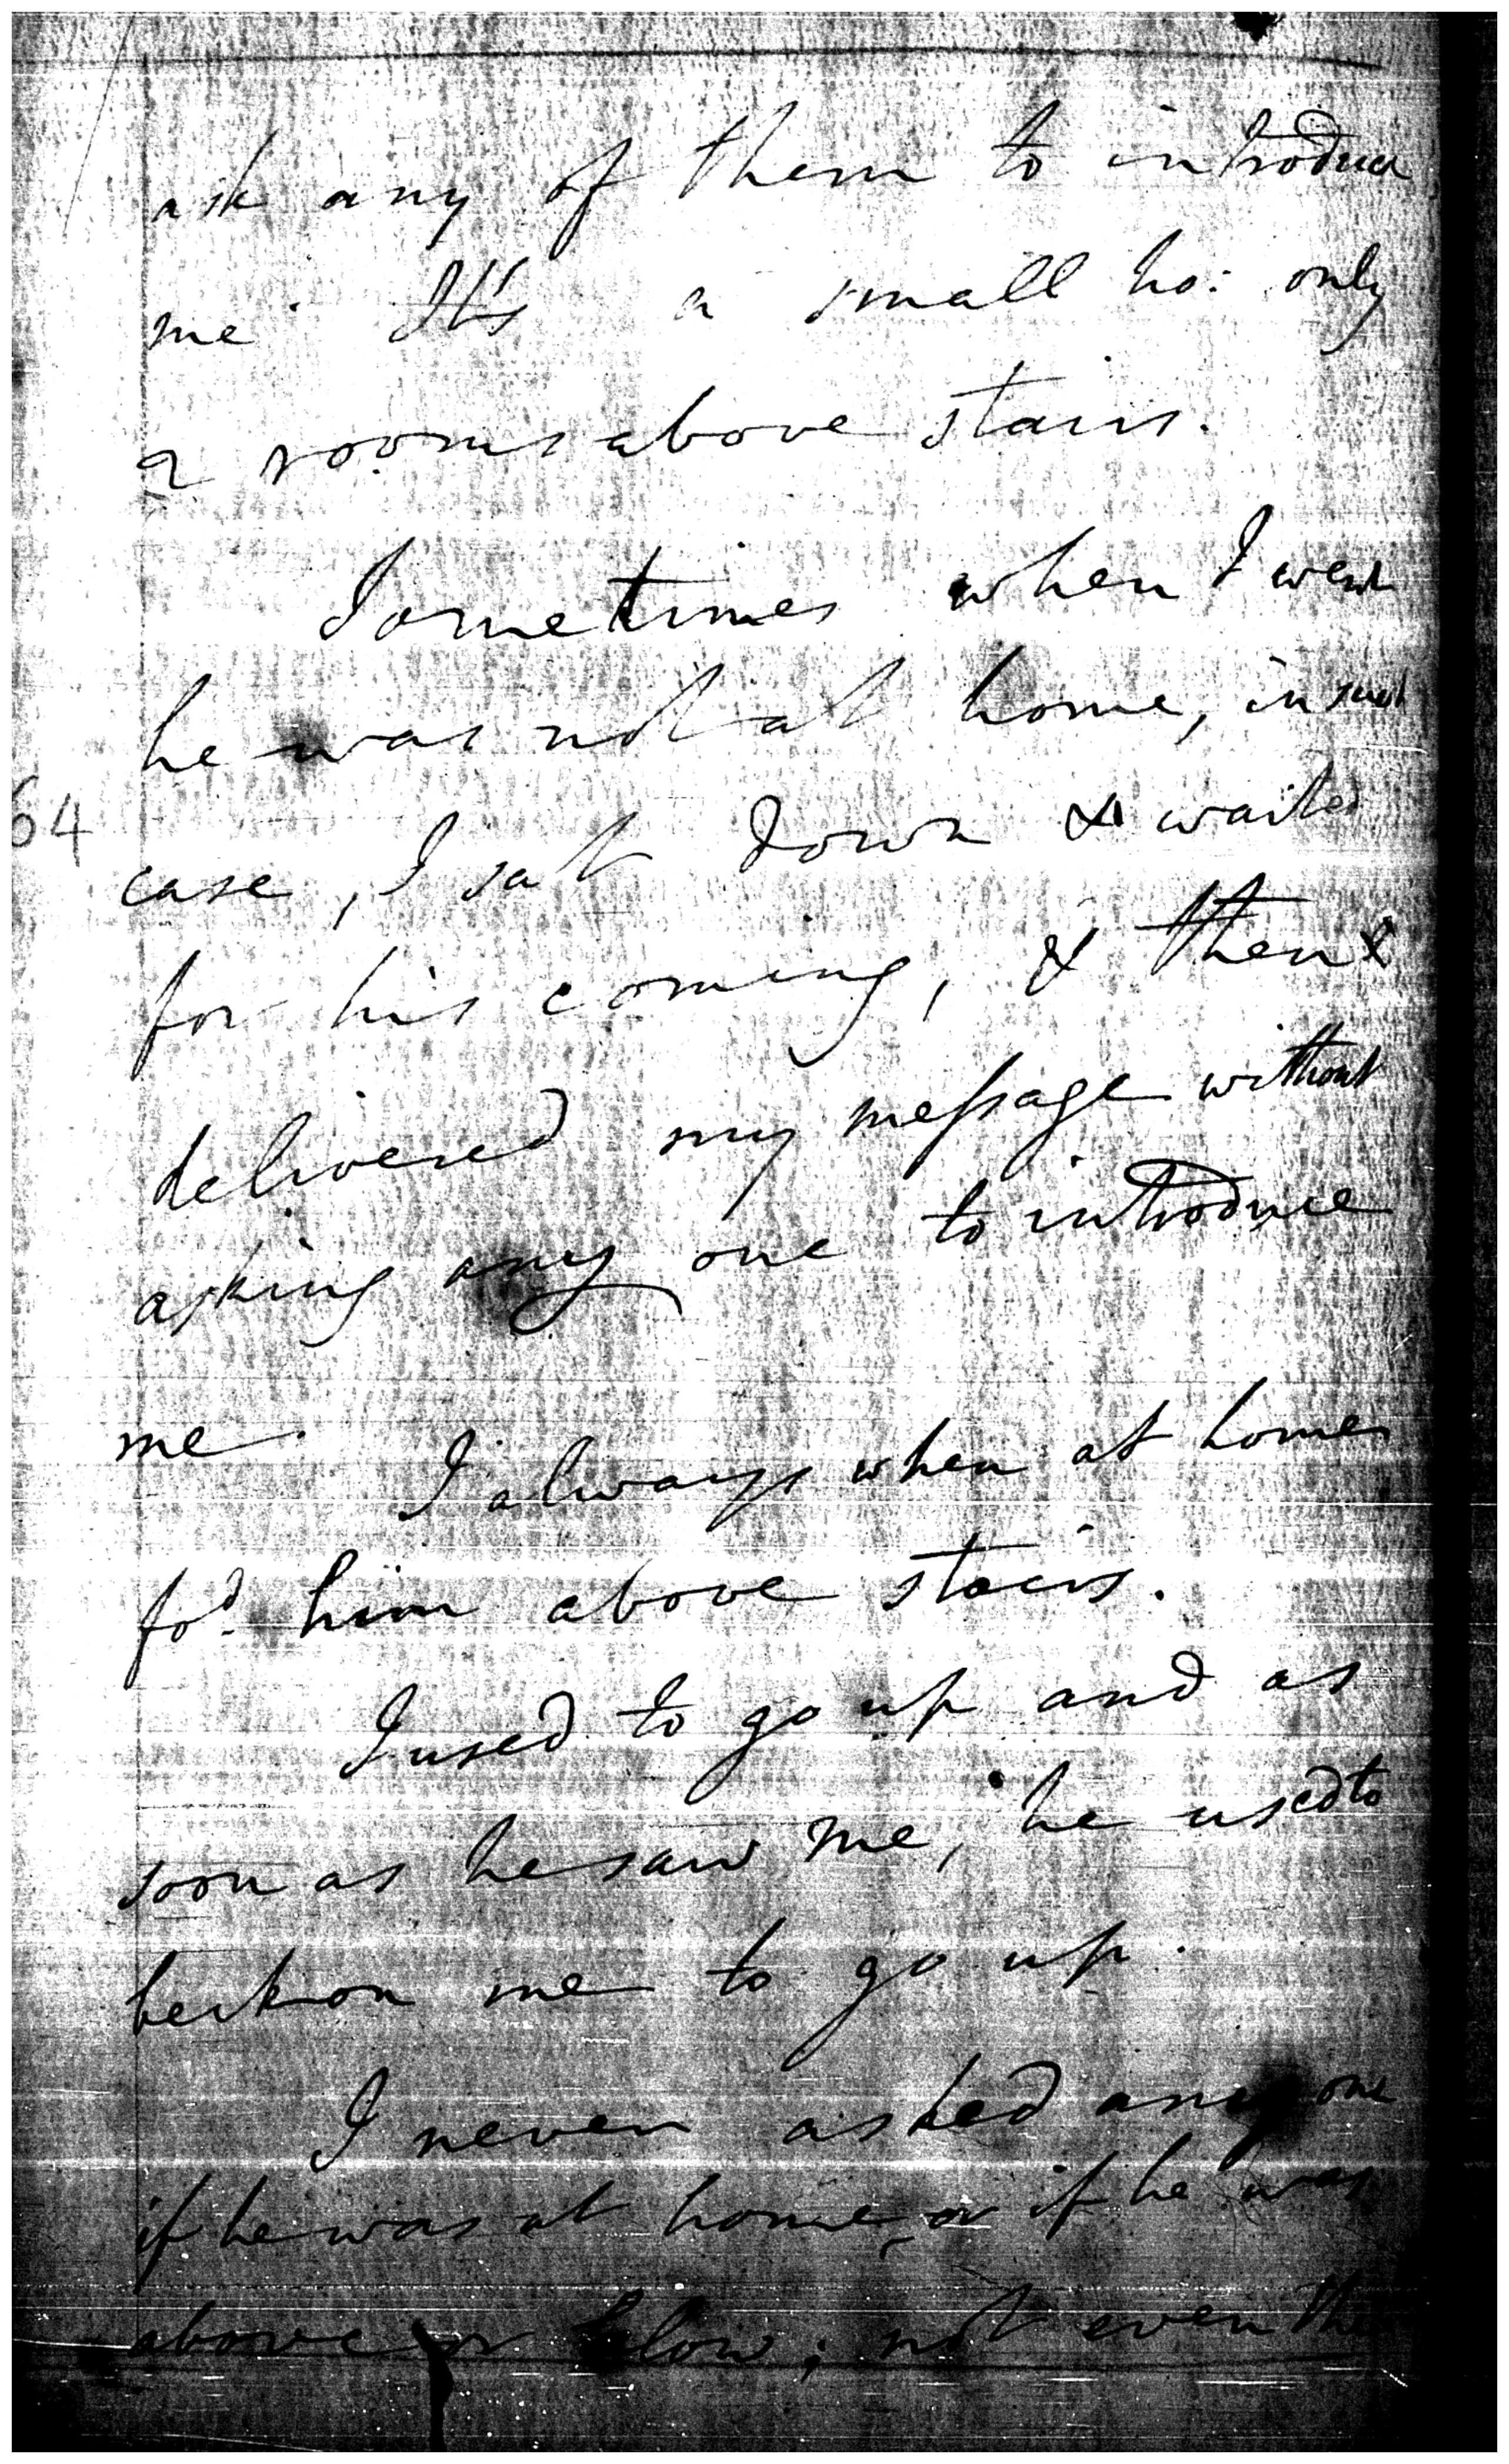 ask any of them to introduce
me. It's a small ho: only
2 rooms above stairs.
Sometimes when I went
he was not at home, in such
64
case, I sat down & waited
for his coming, & then
delivered my message without
asking any one to introduce
me.
I always when at home
fod. him above stairs.
I used to go up and as
soon as he saw me, he used to
beckon me to go up.
I never asked any one
if he was at home, or if he was
above or below; not even the